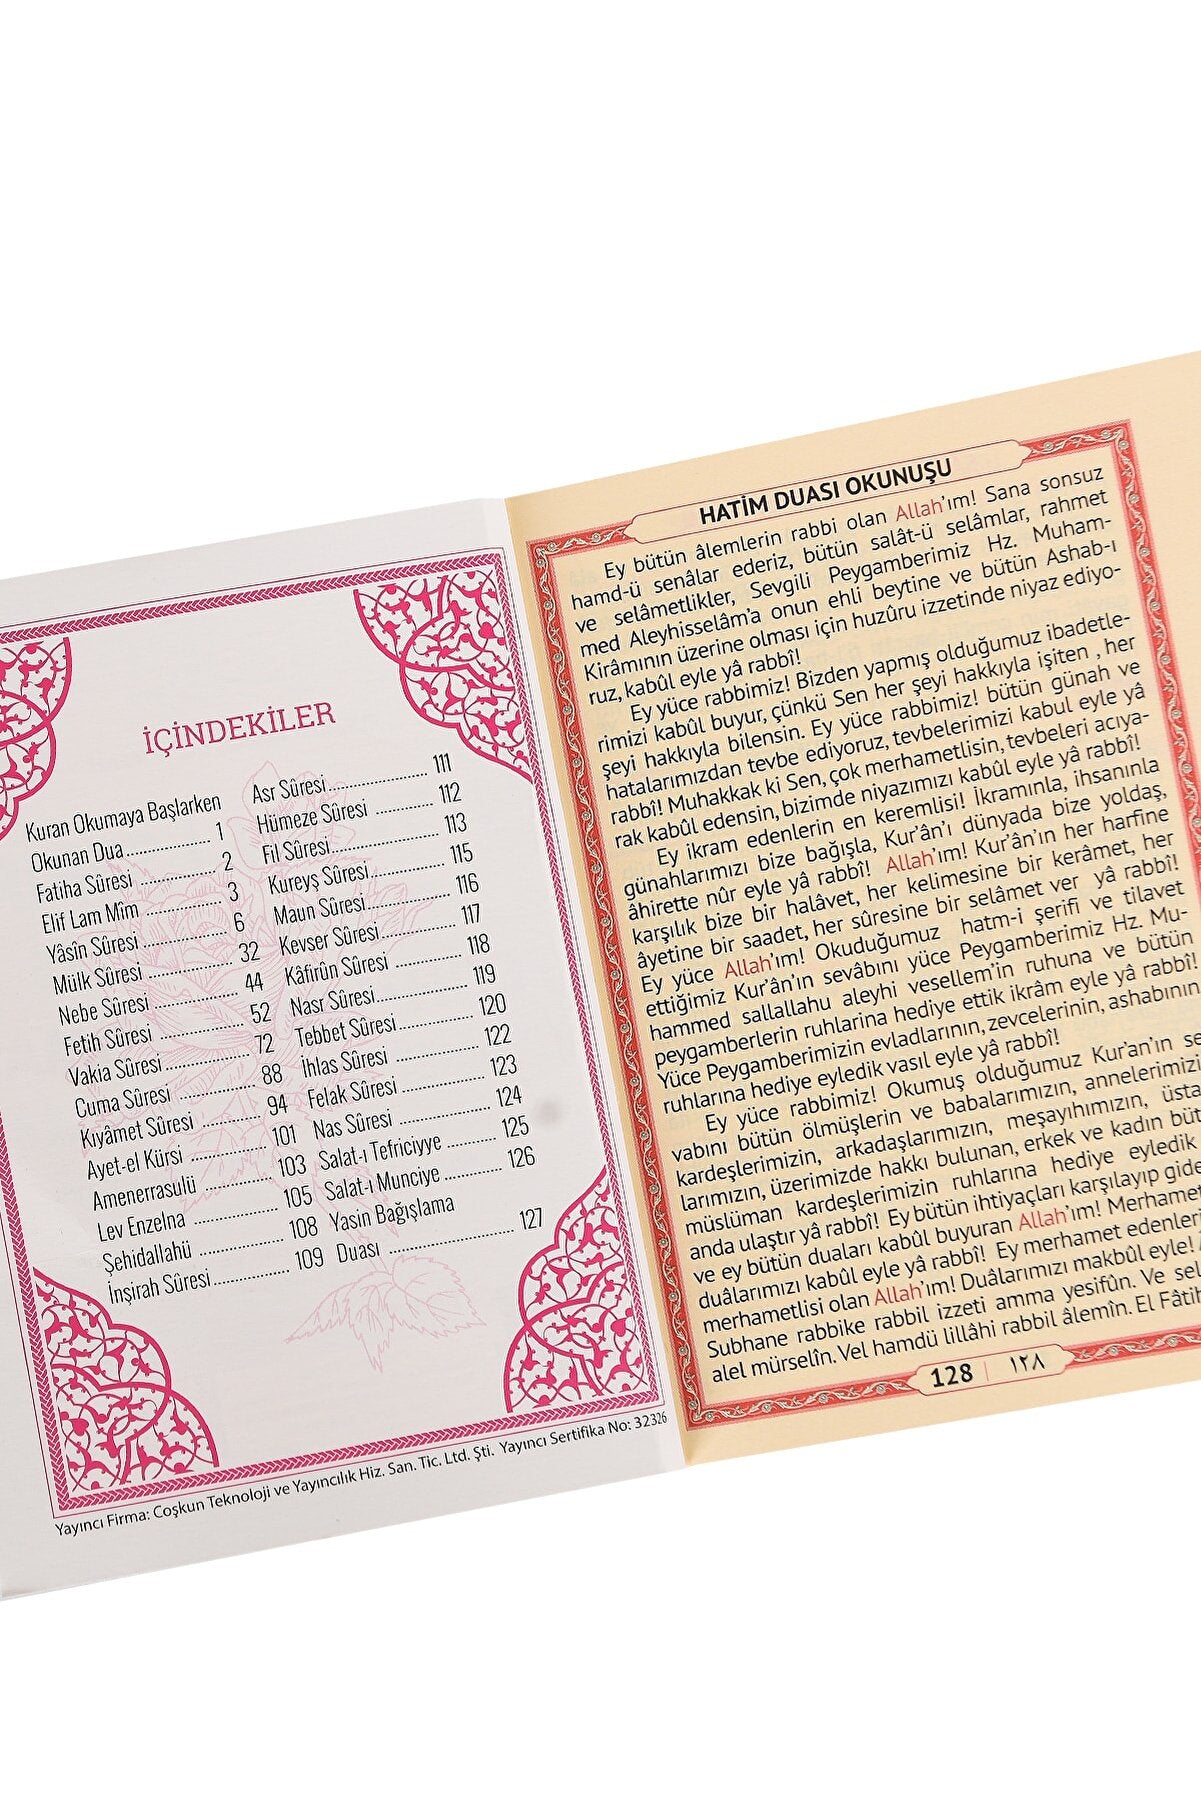 İÇİNDEKİLER
Kuran Okumaya Başlarken
Okunan Dua.................... 1
Fatiha Sûresi .................. 2
Elif Lam Mîm .................. 3
Yâsîn Sûresi .................... 6
Mülk Sûresi .................... 32
Nebe Sûresi .................... 44
Fetih Sûresi .................... 52
Vakia Sûresi .................... 72
Cuma Sûresi .................... 88
Kıyâmet Sûresi ................ 94
Ayet-el Kürsi .................... 101
Amenerrasulü .................. 103
Lev Enzelna .................... 105
Şehidallahü .................... 108
İnşirah Sûresi.................. 109
Asr Sûresi....................... 111
Hümeze Sûresi ............... 112
Fil Sûresi......................... 113
Kureyş Sûresi.................. 115
Maun Sûresi.................... 116
Kevser Sûresi.................. 117
Kâfirûn Sûresi ................. 118
Nasr Sûresi..................... 119
Tebbet Sûresi.................. 120
İhlas Sûresi ..................... 122
Felak Sûresi .................... 123
Nas Sûresi ...................... 124
Salat-ı Tefriciyye ............. 125
Salat-ı Munciye............... 126
Yasin Bağışlama
Duası .............................. 127
Yayıncı Firma: Coşkun Teknoloji ve Yayıncılık Hiz. San. Tic. Ltd. Şti. Yayıncı Sertifika No: 32326
HATİM DUASI OKUNUŞU
Ey bütün âlemlerin rabbi olan Allah'ım! Sana sonsuz
hamd-ü senâlar ederiz, bütün salât-ü selâmlar, rahmet
ve selâmetlikler, Sevgili Peygamberimiz Hz. Muham-
med Aleyhisselâm'a onun ehli beytine ve bütün Ashab-ı
Kirâmının üzerine olması için huzûru izzetinde niyaz ediyo-
ruz, kabûl eyle yâ rabbî!
Ey yüce rabbimiz! Bizden yapmış olduğumuz ibadetle-
rimizi kabûl buyur, çünkü Sen her şeyi hakkıyla işiten , her
şeyi hakkıyla bilensin. Ey yüce rabbimiz! bütün günah ve
hatalarımızdan tevbe ediyoruz, tevbelerimizi kabul eyle yâ
rabbî! Muhakkak ki Sen, çok merhametlisin, tevbeleri acıya-
rak kabûl edensin, bizimde niyazımızı kabûl eyle yâ rabbî!
Ey ikram edenlerin en keremlisi! İkramınla, ihsanınla
günahlarımızı bize bağışla, Kur'ân'ı dünyada bize yoldaş,
âhirette nûr eyle yâ rabbî! Allah'ım! Kur'ân'ın her harfine
karşılık bize bir halâvet, her kelimesine bir kerâmet, her
âyetine bir saadet, her sûresine bir selâmet ver yâ rabbî!
Ey yüce Allah'ım! Okuduğumuz hatm-i şerifi ve tilavet
ettiğimiz Kur'ân'ın sevâbını yüce Peygamberimiz Hz. Mu-
hammed sallallahu aleyhi vesellem'in ruhuna ve bütün
peygamberlerin ruhlarına hediye ettik ikrâm eyle yâ rabbî!
Yüce Peygamberimizin evladlarının, zevcelerinin, ashabının
ruhlarına hediye eyledik vasıl eyle yâ rabbî!
Ey yüce rabbimiz! Okumuş olduğumuz Kur'an'ın se
vabını bütün ölmüşlerin ve babalarımızın, annelerimizi
kardeşlerimizin, arkadaşlarımızın, meşayıhımızın, üsta
larımızın, üzerimizde hakkı bulunan, erkek ve kadın büt
müslüman kardeşlerimizin ruhlarına hediye eyledik
anda ulaştır yâ rabbî! Ey bütün ihtiyaçları karşılayıp gide
ve ey bütün duaları kabûl buyuran Allah'ım! Merhamet
duâlarımızı kabûl eyle yâ rabbî! Ey merhamet edenleri
merhametlisi olan Allah'ım! Duâlarımızı makbûl eyle!
Subhane rabbike rabbil izzeti amma yesifûn. Ve sel
alel mürselîn. Vel hamdü lillâhi rabbil âlemîn. El Fâtih
128 | ١٢٨